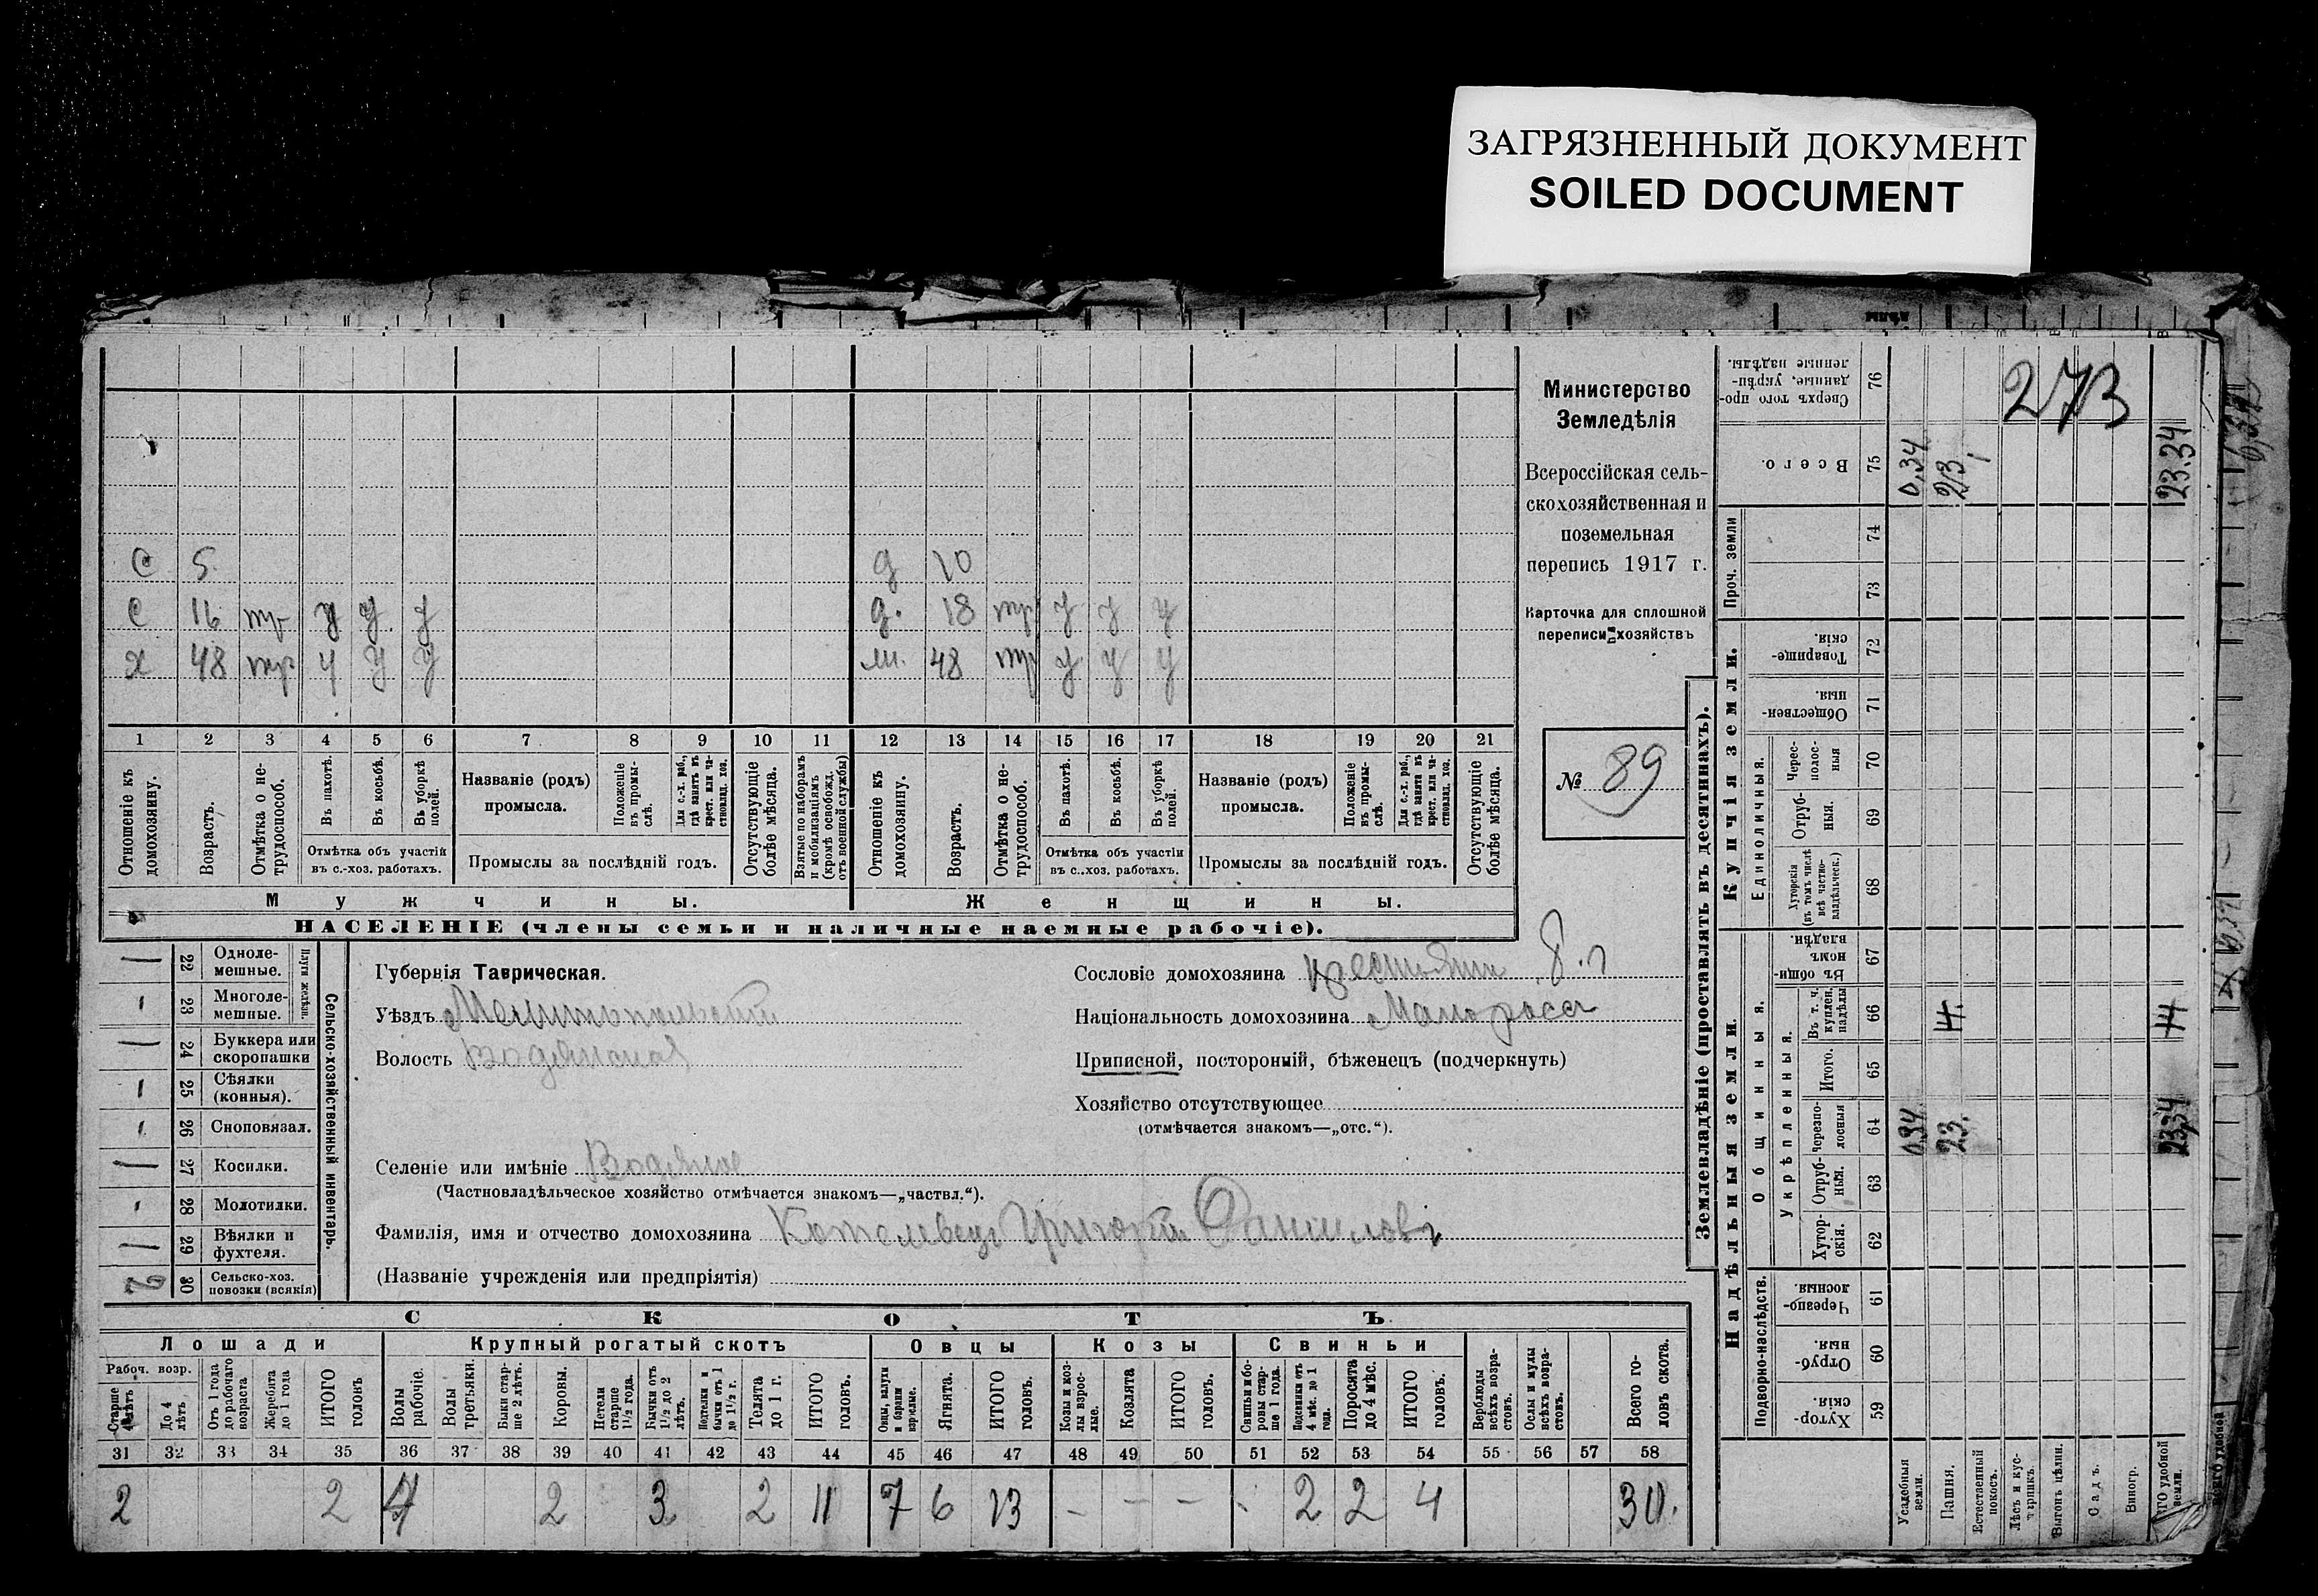 ЗАГРЯЗНЕННЫЙ ДОКУМЕНТ
SOILED DOCUMENT
Министерство
Земледѣлія
Всероссійская сель-
скохозяйственная и
поземельная
перепись 1917 г.
Карточка для сплошной
переписи хозяйствъ
№ 89
С 5 д 10
С 16 тр у у у д. 18 тр у у у
х 48 тр у у у ж. 48 тр у у у
1 2 3 4 5 6 7 8 9 10 11 12 13 14 15 16 17 18 19 20 21
Отношеніе къ домохозяину.
Возрастъ.
Отмѣтка о не-трудоспособ.
Въ пахотѣ.
Въ косьбѣ.
Въ уборкѣ полей.
Отмѣтка объ участіи
въ с.-хоз. работахъ.
Названіе (родъ)
промысла.
Положеніе въ промы-слѣ.
Для с.-х. раб., гдѣ занятъ въ крест. или ча-стновлад. хоз.
Промыслы за послѣдній годъ.
Отсутствующіе болѣе мѣсяца.
Взятые по наборамъ и мобилизаціямъ (кромѣ освобожд. отъ военной службы)
Отношеніе къ домохозяину.
Возрастъ.
Отмѣтка о не-трудоспособ.
Въ пахотѣ.
Въ косьбѣ.
Въ уборкѣ полей.
Отмѣтка объ участіи
въ с.-хоз. работахъ.
Названіе (родъ)
промысла.
Положеніе въ промы-слѣ.
Для с.-х. раб., гдѣ занята въ крест. или ча-стновлад. хоз.
Промыслы за послѣдній годъ.
Отсутствующіе болѣе мѣсяца.
Мужчины. Женщины.
НАСЕЛЕНІЕ (члены семьи и наличные наемные рабочіе).
Сельско-хозяйственный инвентарь.
Плуги желѣзн.
1 22 Одноле-мешные.
23 Многоле-мешные.
1 24 Буккера или скоропашки
25 Сѣялки (конныя).
26 Сноповязал.
1 27 Косилки.
28 Молотилки.
1 29 Вѣялки и фухтеля.
2 30 Сельско-хоз. повозки (всякія)
Губернія Таврическая.
Уѣздъ Мелитопольскій
Волость Водянская
Селеніе или имѣніе Водяное
(Частновладѣльческое хозяйство отмѣчается знакомъ—„частвл.“).
Фамилія, имя и отчество домохозяина Котелевецъ Григорій Даниловъ
(Названіе учрежденія или предпріятія)
Сословіе домохозяина крестьянин
Національность домохозяина Малоросс
Приписной, посторонній, бѣженецъ (подчеркнуть)
Хозяйство отсутствующее
(отмѣчается знакомъ—„отс.“).
СКОТЪ
Лошади Крупный рогатый скотъ Овцы Козы Свиньи
Рабоч. возр.
Старше 4 лѣтъ
До 4 лѣтъ
Отъ 1 года до рабочаго возраста
Жеребята до 1 года
ИТОГО головъ
Волы рабочіе.
Волы третьяки.
Быки стар-ше 2 лѣтъ.
Коровы.
Нетели старше 1½ года.
Бычки отъ 1½ до 2 лѣтъ.
Нетелки и бычки отъ 1 до 1½ г.
Телята до 1 г.
ИТОГО головъ.
Овцы, валухи и бараны взрослые.
Ягнята.
ИТОГО головъ.
Козы и коз-лы взрос-лые.
Козлята
ИТОГО головъ.
Свиньи и бо-ровы стар-ше 1 года.
Подсвинки отъ 4 мѣс. до 1 года.
Поросята до 4 мѣс.
ИТОГО головъ.
Верблюды всѣхъ возра-стовъ.
Ослы и мулы всѣхъ возра-стовъ.
Всего го-ловъ скота.
31 32 33 34 35 36 37 38 39 40 41 42 43 44 45 46 47 48 49 50 51 52 53 54 55 56 57 58
2 2 4 2 3 2 11 7 6 13 - - - 2 2 4 30.
Землевладѣніе (проставлять въ десятинахъ).
Купчія земли.
Надѣльныя земли.
76 Сверхъ того про-данные, укрѣп-ленные надѣлы.
75 Всего. 0,34 23 23.34
Проч. земли
74
73
72 Товарище-скія.
71 Обществен-ныя.
Единоличныя.
70 Черес-полос-ныя
69 Отруб-ныя.
68 Хуторскія (въ томъ числѣ всѣ частно-владѣльческ.)
Общинныя.
67 Въ общи-номъ владѣн.
Укрѣпленныя.
66 Въ т. ч. куплен. надѣлы 4. 4
65 Итого.
64 Черезпо-лосныя 0.34 23. 23,34
63 Отруб-ныя.
62 Хутор-скія.
Подворно-наслѣдств.
61 Черезпо-лосныя
60 Отруб-ныя
59 Хутор-скія
Усадебныя земли.
Пашня.
Естественный покосъ.
Лѣсъ и кус-тарникъ.
Выгонъ цѣлин.
Садъ.
Виногр.
ИТОГО удобной земли.
273